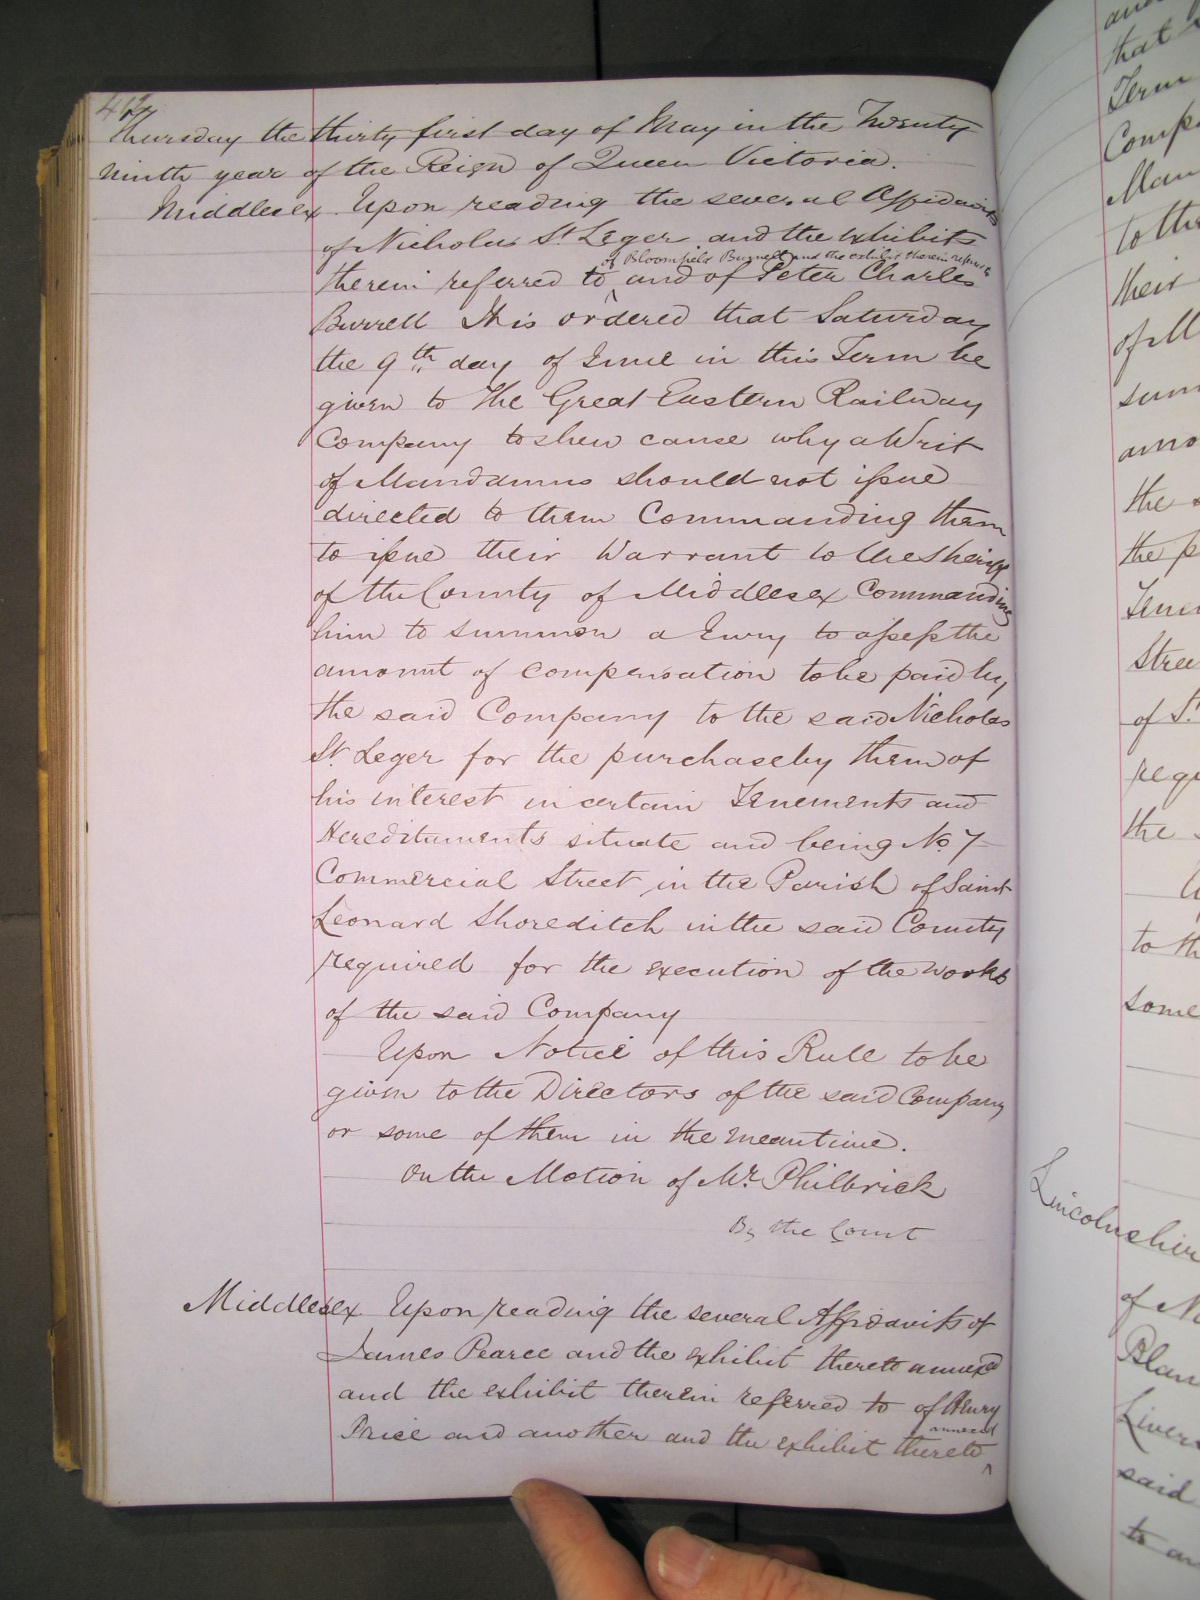 Thursday the thirty first day of May in the Twenty
ninth year of the Reign of Queen Victoria.
Middlesex Upon reading the several Affidavits
of Nicholas St Leger and the exhibits
of Bloomfield Burnell and the exhibit therein referred to
therein referred to and of Peter Charles
Burrell It is ordered that Saturday
the 9th day of June in this Term be
given to The Great Eastern Railway
Company to shew cause why a Writ
of Mandamus should not issue
directed to them Commanding them
to issue their Warrant to the Sheriff
of the County of Middlesex Commanding
him to summon a Jury to assess the
amount of compensation to be paid by
the said Company to the said Nicholas
St Leger for the purchase by them of
his interest in certain Tenements and
Hereditaments situate and being No 7
Commercial Street in the Parish of Saint
Leonard Shoreditch in the said County
required for the execution of the works
of the said Company
Upon Notice of this Rule to be
given to the Directors of the said Company
or some of them in the meantime.
On the Motion of Mr Philbrick
By the Court
Middlesex Upon reading the several Affidavits of
James Pearce and the exhibit thereto annexed
and the exhibit therein referred to of Henry
annexed
Price and another and the exhibit thereto
that
Term
to the
their
of
the
the
of St
the
to th
some
Lincolnshire
of
said
to